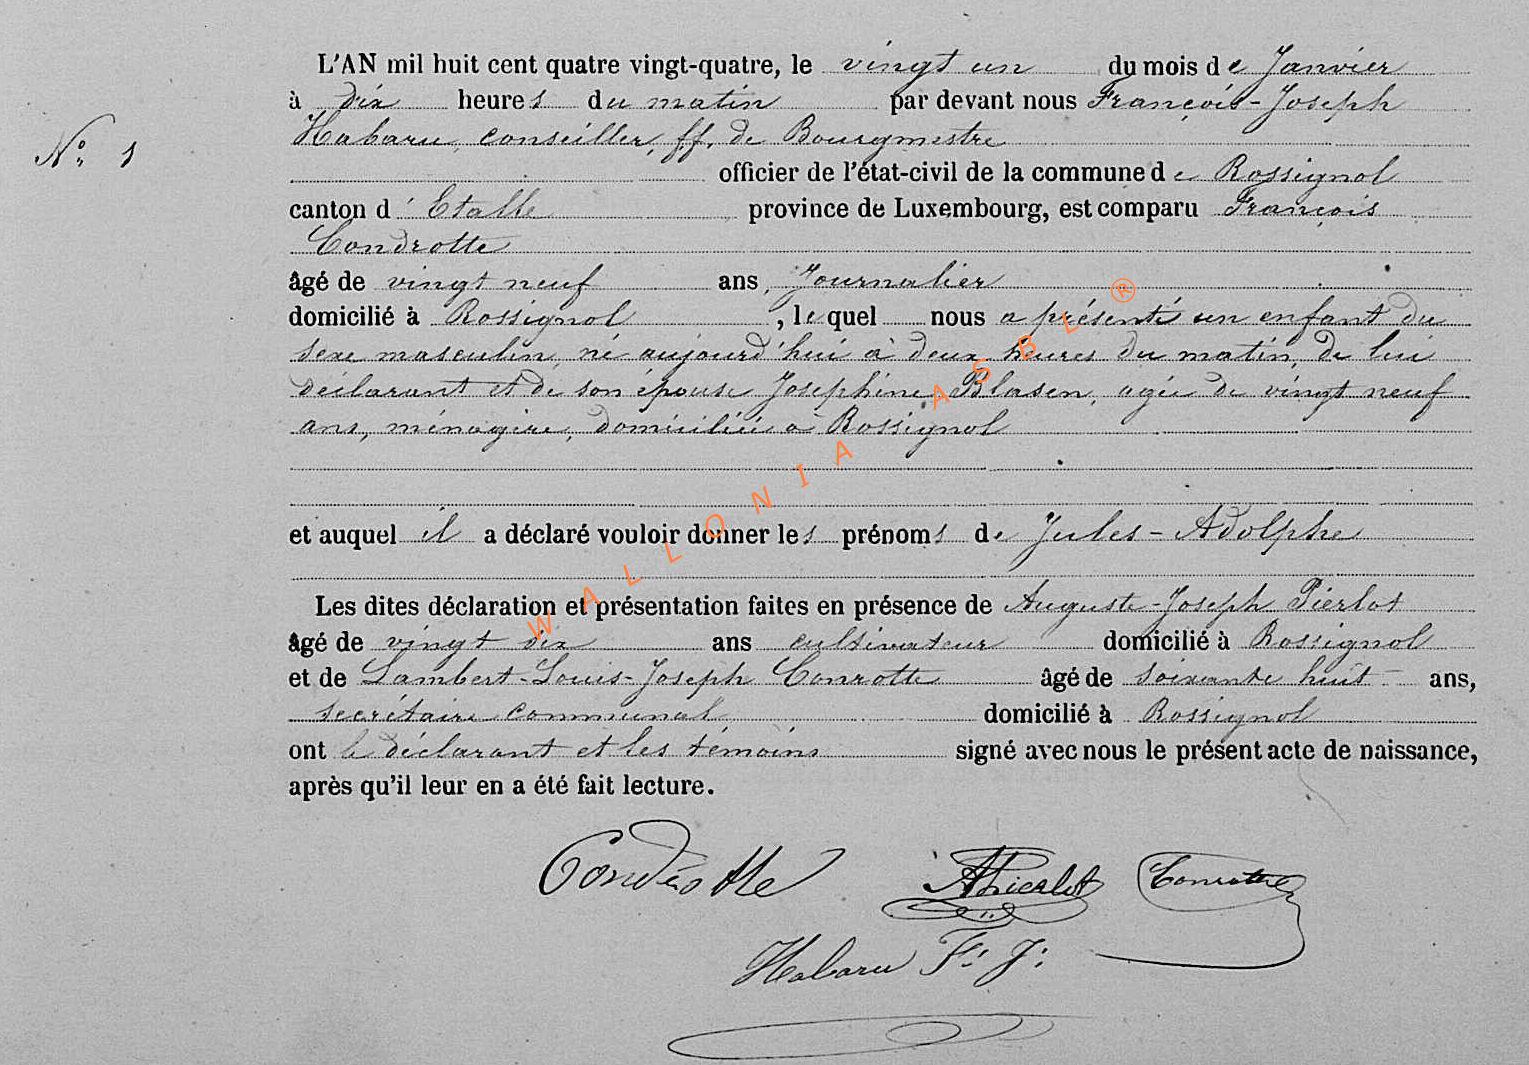 L'AN mil huit cent quatre vingt-quatre, le vingt un du mois de Janvier
à dix heures du matin par devant nous François-Joseph
Nº 1
Habaru, conseiller, ff. de Bourgmestre
officier de l'état-civil de la commune de Rossignol
canton d'Etalle province de Luxembourg, est comparu François
Condrotte
âgé de vingt neuf ans, Journalier
domicilié à Rossignol, lequel nous a présenté un enfant du
sexe masculin, né aujourd'hui à deux heures du matin, de lui
déclarant et de son épouse Joséphine Blasen, agée de vingt neuf
ans, ménagère, domiciliée à Rossignol
et auquel il a déclaré vouloir donner les prénoms de Jules-Adolphe
Les dites déclaration et présentation faites en présence de Auguste-Joseph Pierlot
âgé de vingt dix ans cultivateur domicilié à Rossignol
et de Lambert-Louis-Joseph Conrotte âgé de soixante huit ans,
secrétaire communal domicilié à Rossignol
ont le déclarant et les témoins signé avec nous le présent acte de naissance,
après qu'il leur en a été fait lecture.
Condrotte APierlot Conrotte
Habaru F. J.
WALLONIA ASBL ®